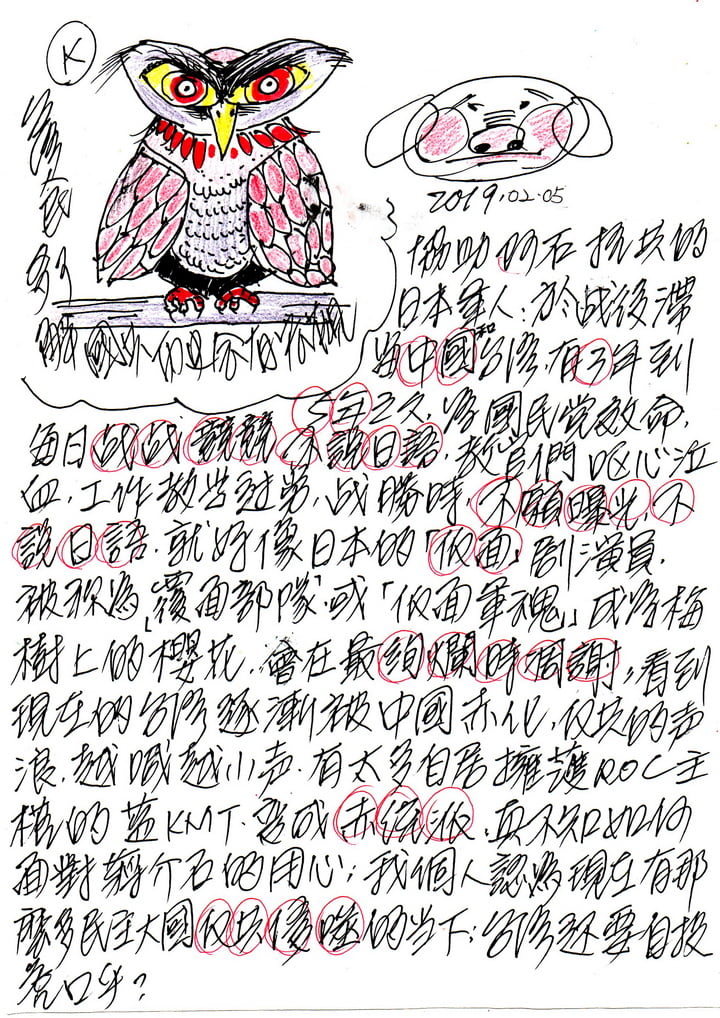 K
2019.02.05
協助介石抗共的
日本軍人:於战後滯
留中國和台湾.有3年到
5年之久.為國民党效命.
每日战战兢兢.不説日語.教官們嘔心泣
血.工作教学过劳.战勝時.不願曝光.不
説日語.就好像日本的「仮面」剧演員.
被称為「覆面部隊」或「仮面軍魂」成為梅
樹上的櫻花.會在最絢爛時凋謝;看到
現在的台湾逐漸被中國赤化.反共的声
浪.越喊越小声.有太多自居擁護ROC主
權的藍KMT.变成赤統派.真不知如何
面對蔣介石的用心;我個人認為現在有那
麼多民主大國反共侵略的当下;台湾还要自投
虎口乎?